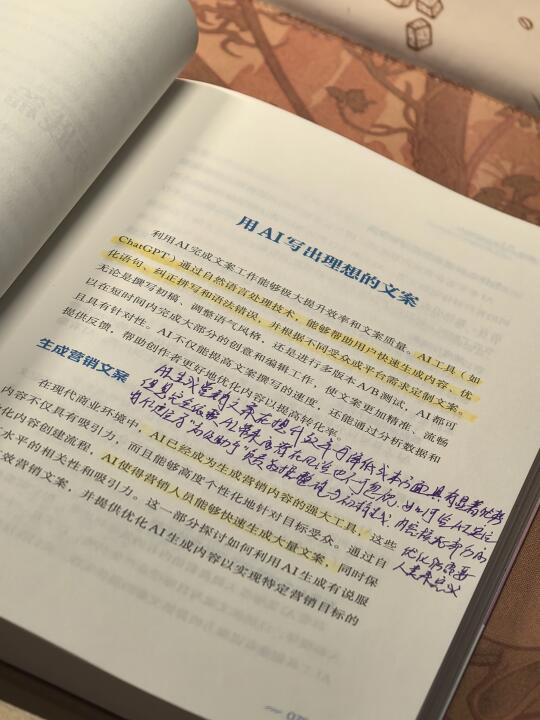 用AI写出理想的文案
利用AI完成文案工作能够极大提升效率和文案质量。AI工具（如
ChatGPT）通过自然语言处理技术，能够帮助用户快速生成内容、优
化语句、纠正拼写和语法错误，并根据不同受众或平台需求定制文案。
无论是撰写初稿、调整语气风格，还是进行多版本A/B测试，AI都可
以在短时间内完成大部分的创意和编辑工作，使文案更加精准、流畅
且具有针对性。AI不仅能提高文案撰写的速度，还能通过分析数据和
提供反馈，帮助创作者更好地优化内容以提高转化率。
生成营销文案
AI生成营销文案在提升效率与降低成本方面具有显著优势
优化仍需要
人类来定义
在现代商业环境中，AI已经成为生成营销内容的强大工具，这些
内容不仅具有吸引力，而且能够高度个性化地针对目标受众。通过自
化内容创建流程，AI使得营销人员能够快速生成大量文案，同时保
水平的相关性和吸引力。这一部分探讨如何利用AI生成有说服
效营销文案，并提供优化AI生成内容以实现特定营销目标的